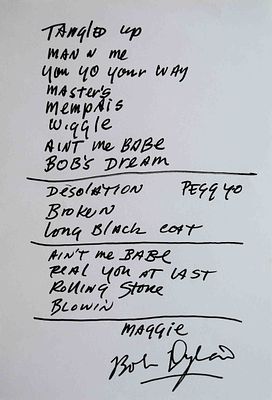 TANGLED up
MAN N me
you GO your WAY
MASTER'S
Memphis
Wiggle
AIN'T me BABE
BOB'S DREAM
DESOLATION PEGGY O
BROKEN
Long Black coat
AIN'T me BABE
REAL YOU AT LAST
Rolling Stone
BLOWIN
MAGGIE
Bob Dylan